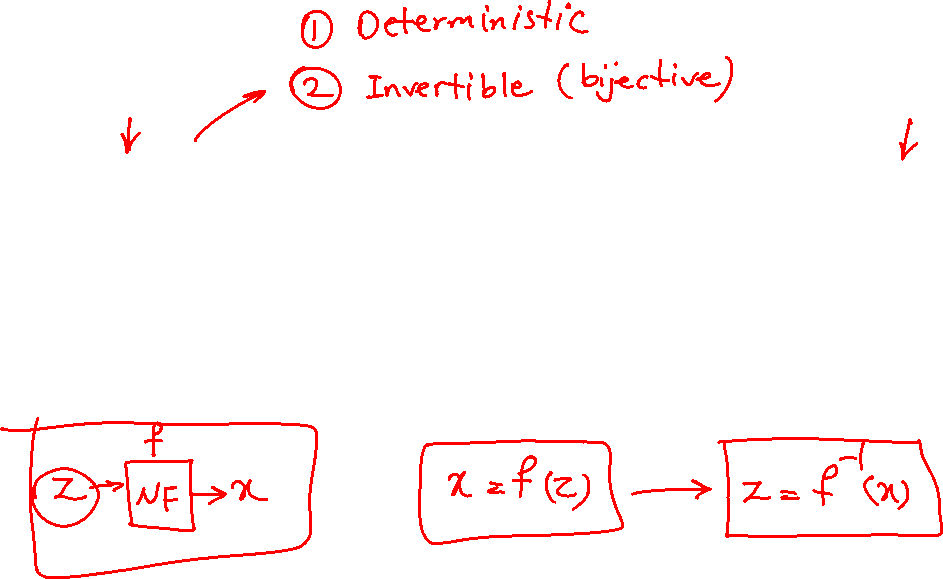 ① Deterministic
② Invertible (bijective)
f
z → NF → x
x = f(z) → z = f⁻¹(x)